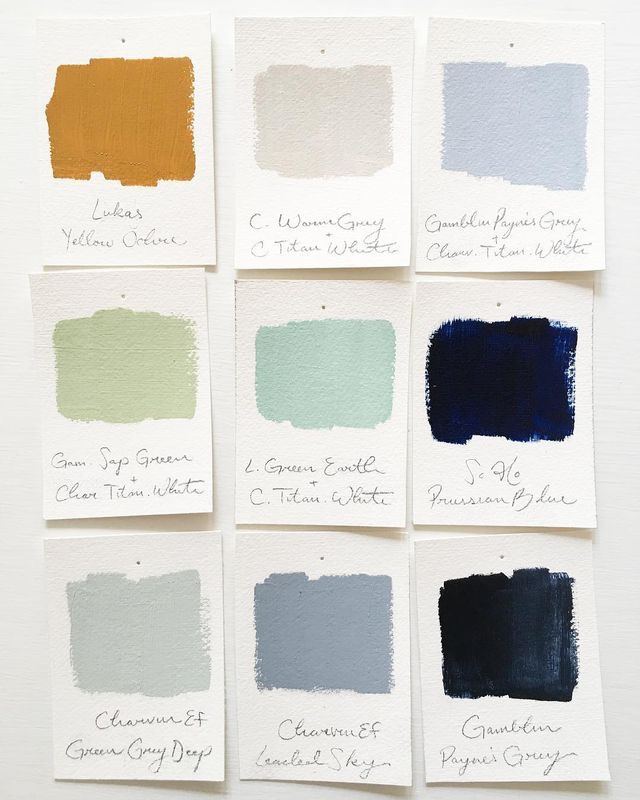 Lukas
Yellow Ochre
C. Warm Grey
+
C Titan White
Gamblin Payne's Grey
+
Charv. Titan. White
Gam. Sap Green
+
Char Titan. White
L. Green Earth
+
C. Titan. White
Prussian Blue
Charvin Ef
Green Grey Deep
Charvin Ef
Leaded Sky
Gamblin
Payne's Grey